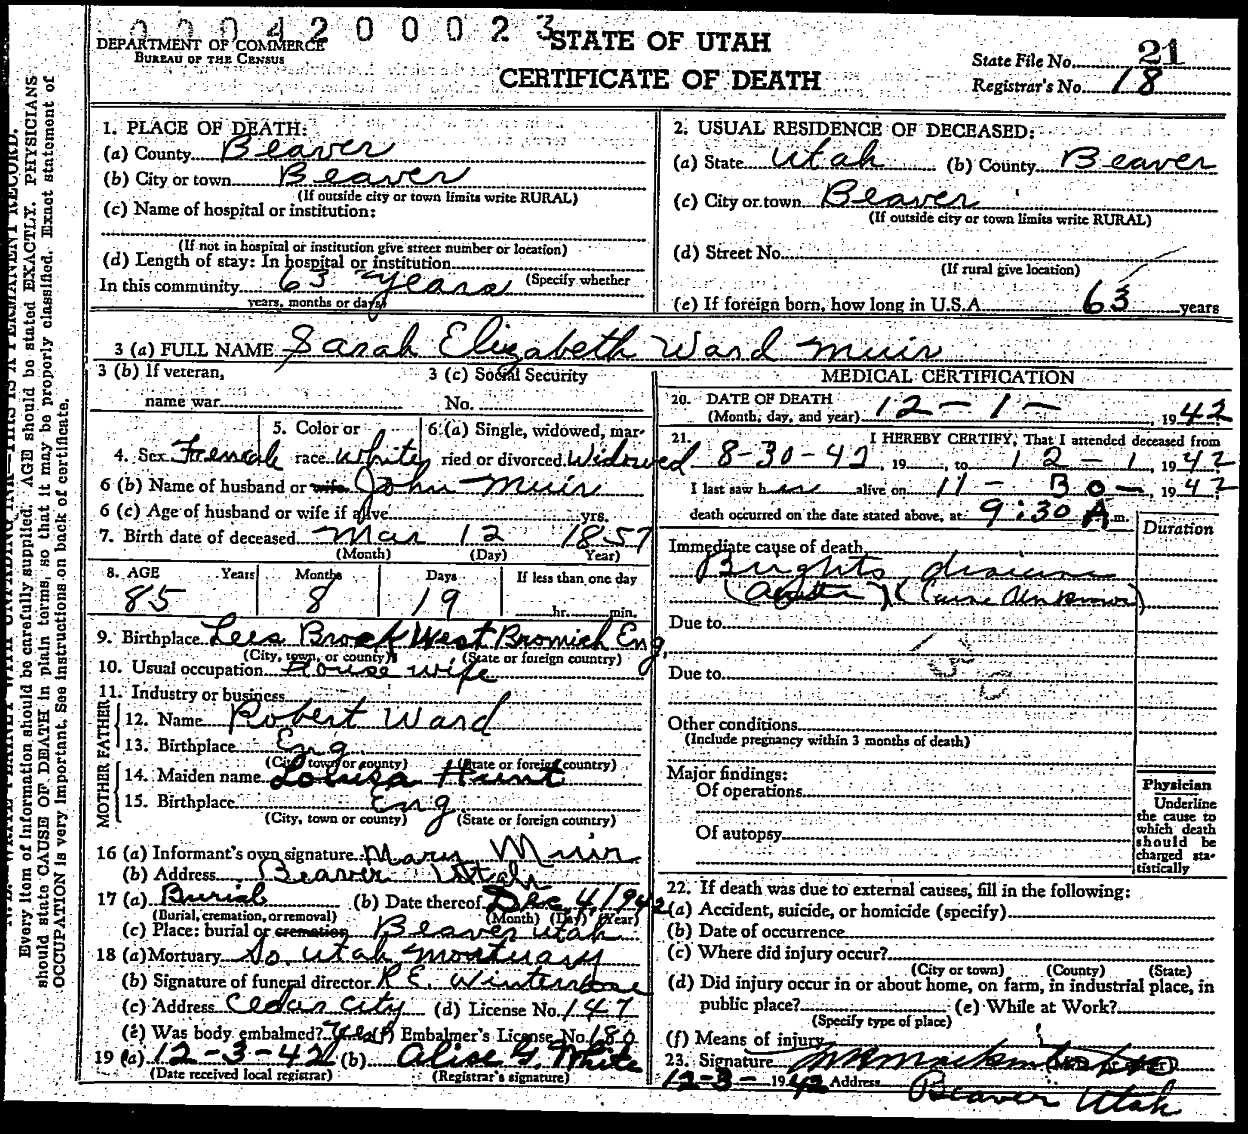 000420023
DEPARTMENT OF COMMERCE
BUREAU OF THE CENSUS
STATE OF UTAH
CERTIFICATE OF DEATH
State File No. 21
Registrar's No. 18
1. PLACE OF DEATH:
(a) County Beaver
(b) City or town Beaver
(If outside city or town limits write RURAL)
(c) Name of hospital or institution:
(If not in hospital or institution give street number or location)
(d) Length of stay: In hospital or institution
(Specify whether
In this community 63 years
years, months or days)
2. USUAL RESIDENCE OF DECEASED:
(a) State Utah (b) County Beaver
(c) City or town Beaver
(If outside city or town limits write RURAL)
(d) Street No.
(If rural give location)
(e) If foreign born, how long in U.S.A. 63 years
3 (a) FULL NAME Sarah Elizabeth Ward Muir
3 (b) If veteran, 3 (c) Social Security
name war No.
4. Sex Female 5. Color or race White 6 (a) Single, widowed, married or divorced Widowed
6 (b) Name of husband or wife John Muir
6 (c) Age of husband or wife if alive yrs.
7. Birth date of deceased Mar 12 1857
(Month) (Day) Year)
8. AGE Years Months Days If less than one day
85 8 19 hr. min.
9. Birthplace Lees Brook West Bromich Eng.
(City, town, or county) (State or foreign country)
10. Usual occupation House wife
11. Industry or business
FATHER
12. Name Robert Ward
13. Birthplace Eng
(City, town or county) (State or foreign country)
MOTHER
14. Maiden name Louisa Hunt
15. Birthplace Eng
(City, town or county) (State or foreign country)
16 (a) Informant's own signature Mary Muir
(b) Address Beaver Utah
17 (a) Burial (b) Date thereof Dec 4 1942
(Burial, cremation, or removal) (Month) (Day) (Year)
(c) Place: burial or cremation Beaver Utah
18 (a) Mortuary So. Utah Mortuary
(b) Signature of funeral director R E. Winterrose
(c) Address Cedar City (d) License No. 147
(e) Was body embalmed? Yes (f) Embalmer's License No. 180
19 (a) 12-3-42 (b) Alise G. White
(Date received local registrar) (Registrar's signature)
MEDICAL CERTIFICATION
20. DATE OF DEATH
(Month, day, and year) 12-1-, 1942
21. I HEREBY CERTIFY, That I attended deceased from
8-30-42, 19, to 12-1, 1942
I last saw her alive on 11-30-, 1942
death occurred on the date stated above, at 9:30 A m.
Duration
Immediate cause of death
Brights disease
(Acute) (Cause Unknown)
Due to
Due to
Other conditions
(Include pregnancy within 3 months of death)
Major findings:
Of operations
Of autopsy
Physician
Underline
the cause to
which death
should be
charged sta-
tistically
22. If death was due to external causes, fill in the following:
(a) Accident, suicide, or homicide (specify)
(b) Date of occurrence
(c) Where did injury occur?
(City or town) (County) (State)
(d) Did injury occur in or about home, on farm, in industrial place, in
public place? (e) While at Work?
(Specify type of place)
(f) Means of injury
23. Signature
12-3-1942 Address Beaver Utah
Every item of information should be carefully supplied. AGE should be stated EXACTLY. PHYSICIANS
should state CAUSE OF DEATH in plain terms, so that it may be properly classified. Exact statement of
OCCUPATION is very important. See instructions on back of certificate.